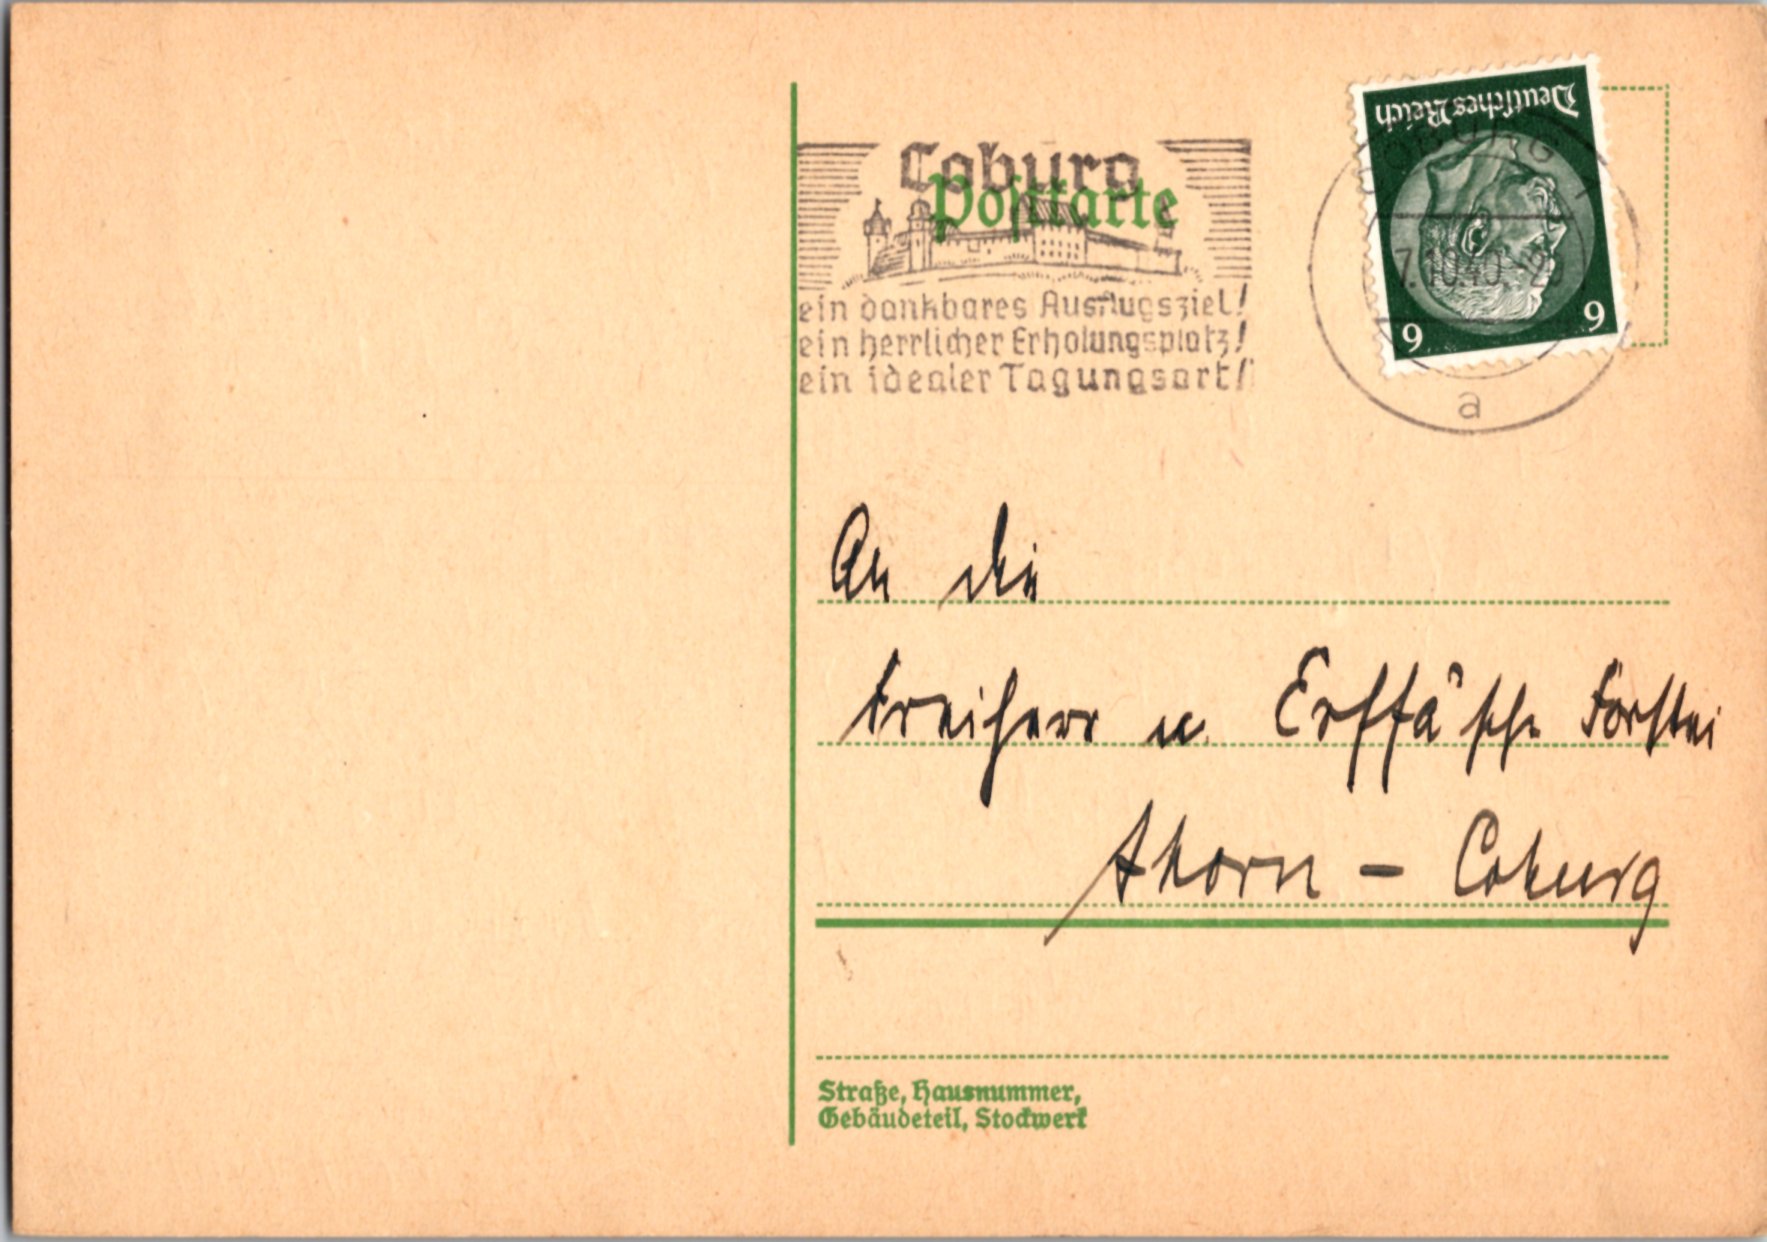 Coburg
Postkarte
ein dankbares Ausflugsziel!
ein herrlicher Erholungsplatz!
ein idealer Tagungsort!
Deutsches Reich
COBURG 1
7.10.40.
6 6
a
An die
Freiherr v. Erffa'sche Försterei
Ahorn – Coburg
Straße, Hausnummer,
Gebäudeteil, Stockwerk